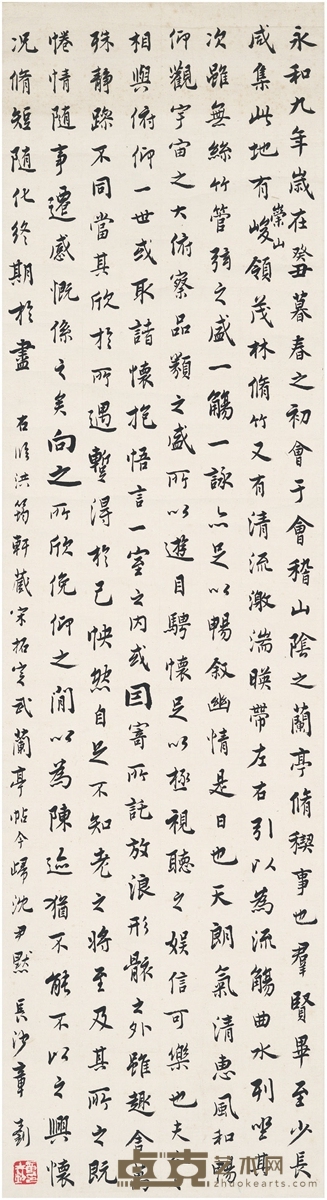 永和九年歲在癸丑暮春之初會于會稽山陰之蘭亭脩稧事也羣賢畢至少長
咸集此地有崇山峻領茂林脩竹又有清流激湍暎帶左右引以為流觴曲水列坐其
次雖無絲竹管弦之盛一觴一詠亦足以暢叙幽情是日也天朗氣清惠風和暢
仰觀宇宙之大俯察品類之盛所以遊目騁懷足以極視聽之娛信可樂也夫
相與俯仰一世或取諸懷抱悟言一室之內或因寄所託放浪形骸之外雖趣舍
殊靜躁不同當其欣於所遇暫得於己怏然自足不知老之將至及其所之既
惓情隨事遷感慨係之矣向之所欣俛仰之閒以為陳迹猶不能不以之興懷
況脩短隨化終期於盡 右臨洪筠軒藏宋拓定武蘭亭帖今歸沈尹默 長沙章釗
卓克艺术网
zhuokearts.com